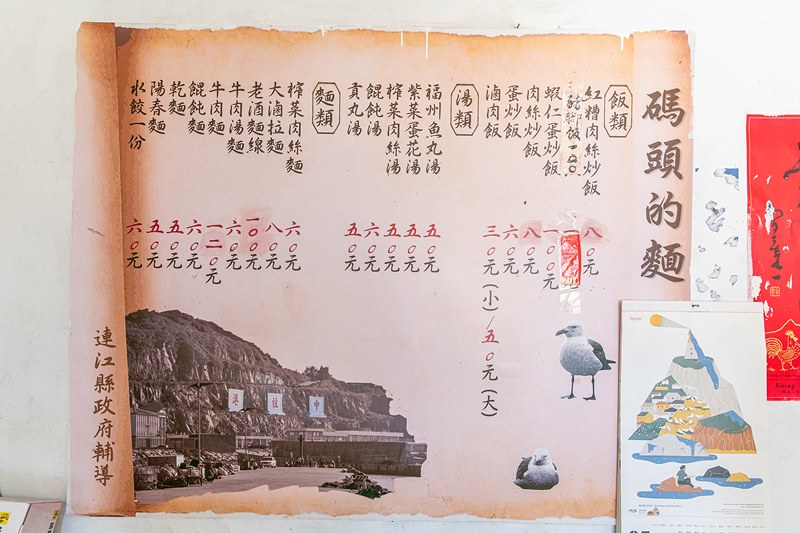 碼頭的麵
飯類
紅糟肉絲炒飯 八〇元
蝦仁蛋炒飯 一〇〇元
肉絲炒飯 八〇元
蛋炒飯 六〇元
滷肉飯 三〇元(小)/五〇元(大)
湯類
福州魚丸湯 五〇元
紫菜蛋花湯 五〇元
榨菜肉絲湯 五〇元
餛飩湯 六〇元
貢丸湯 五〇元
麵類
榨菜肉絲麵 六〇元
大滷拉麵 八〇元
老酒麵線 一〇〇元
牛肉湯麵 六〇元
牛肉麵 一二〇元
餛飩麵 六〇元
乾麵 五〇元
陽春麵 五〇元
水餃一份 六〇元
中柱港
連江縣政府輔導